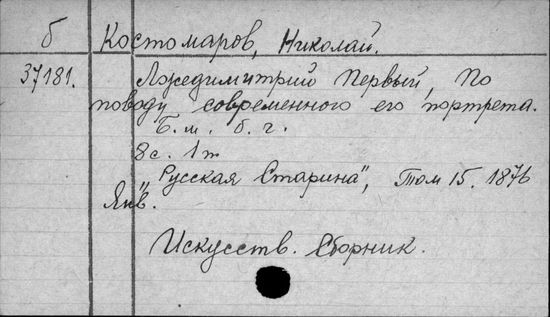 б Костомаров, Николай.
37181. Лжедимитрий Первый, По
поводу современного его портрета.
Б.м. б.г.
8с. 1т
"Русская Старина", Том 15. 1876
Янв.
Искусств. Сборник.